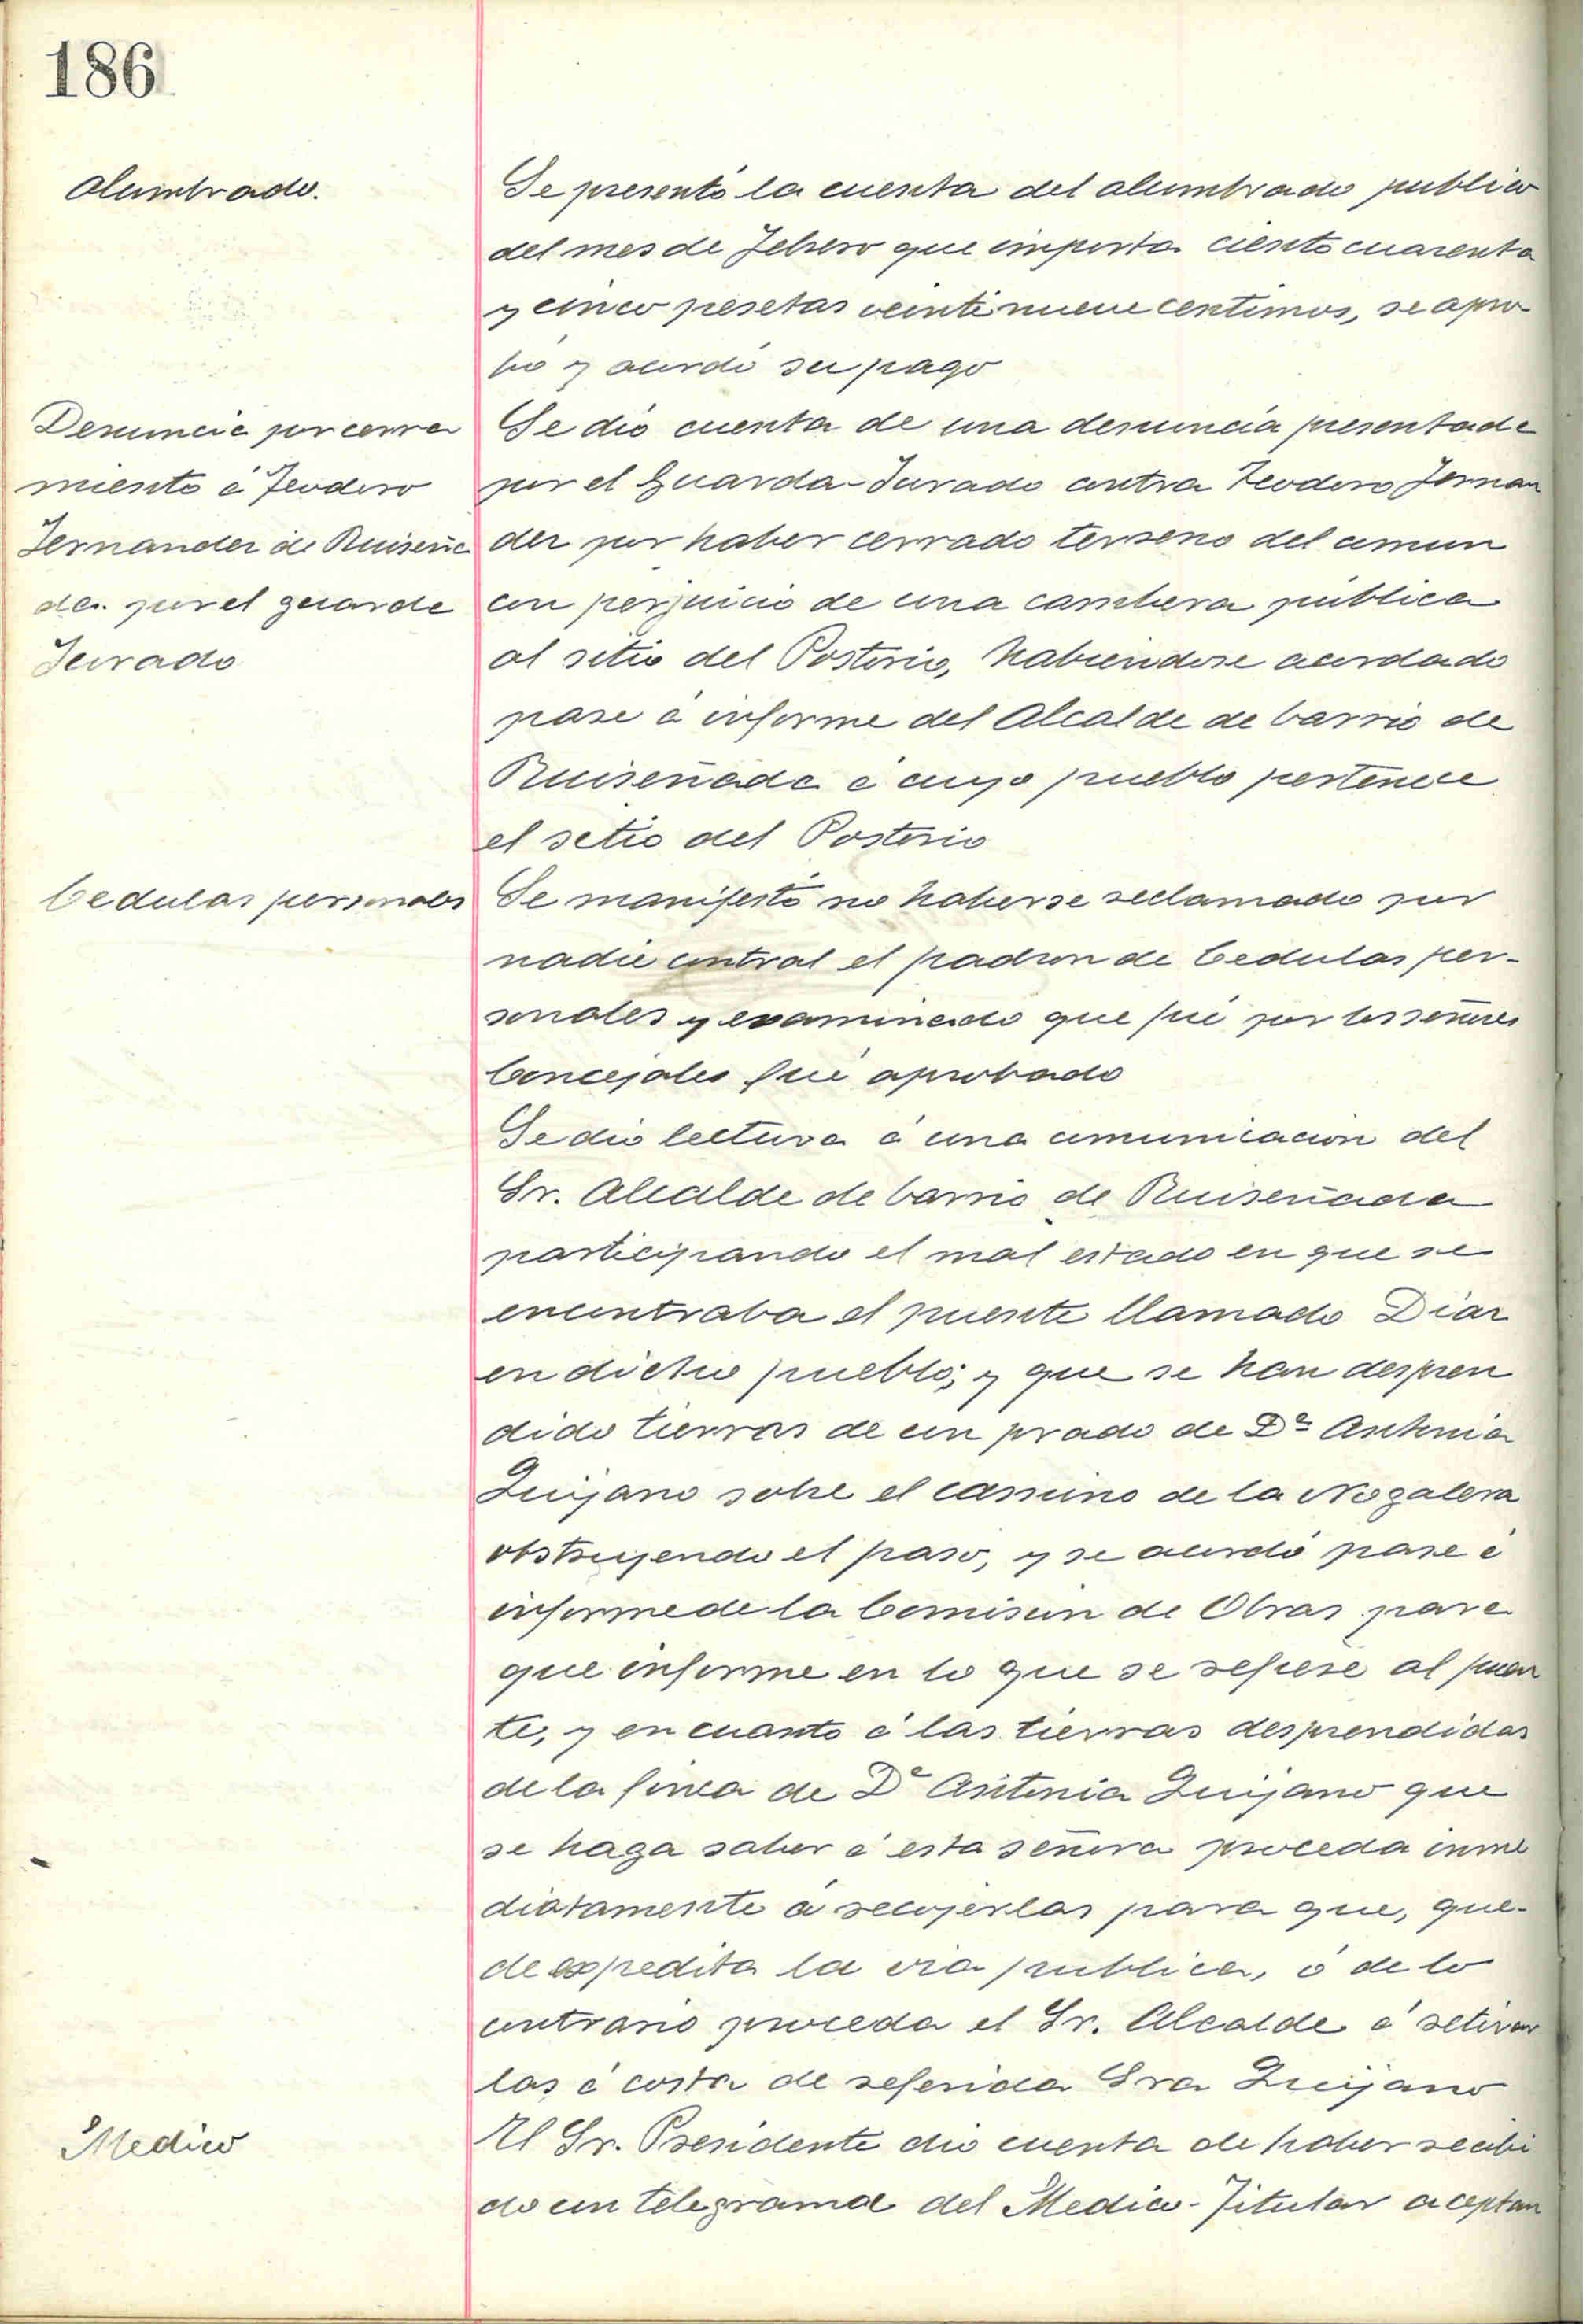 186
Alumbrado.
Se presentó la cuenta del alumbrado publico
del mes de Febrero que importa ciento cuarenta
y cinco pesetas veintinueve centimos, se apro-
bó y acordó su pago
Denuncia por cerra
miento á Teodoro
Fernandez de Ruiseña
da. por el guarda
Jurado
Se dió cuenta de una denuncia presentada
por el Guarda-Jurado contra Teodoro Fernan
dez por haber cerrado terreno del comun
con perjuicio de una cambera pública
al sitio del Postorio, habiendose acordado
pase á informe del Alcalde de barrio de
Ruiseñada á cuyo pueblo pertenece
el sitio del Postorio
Cedulas personales
Se manifestó no haberse reclamado por
nadie contral el padron de Cedulas per-
sonales y examinado que fué por los señores
Concejales fué aprobado
Se dió lectura á una comunicacion del
Sr. Alcalde de barrio de Ruiseñada
participando el mal estado en que se
encontraba el puente llamado Diaz
en dicho pueblo; y que se han despren
dido tierras de un prado de Dª Antonia
Quijano sobre el camino de la Nogalera
obstruyendo el paso, y se acordó pase á
informe de la Comision de Obras para
que informe en lo que se refiere al puen
te, y en cuanto á las tierras desprendidas
de la finca de Dª Antonia Quijano que
se haga saber á esta señora proceda inme
diatamente a recojerlas para que, que-
de expedita la via publica, ó de lo
contrario proceda el Sr. Alcalde á retirar
las á costa de referida Sra Quijano
Medico
El Sr. Presidente dió cuenta de haber recibi
do un telegrama del Medico-Titular aceptan